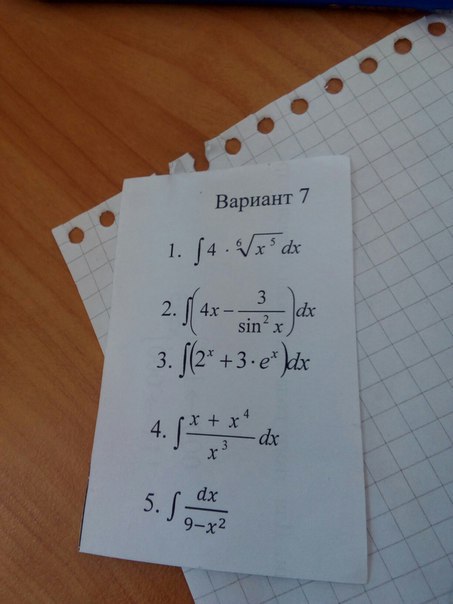 Вариант 7
1. ∫ 4 · ⁶√(x⁵) dx
2. ∫(4x − 3/sin² x)dx
3. ∫(2ˣ + 3 · eˣ)dx
4. ∫ (x + x⁴)/x³ dx
5. ∫ dx/(9−x²)